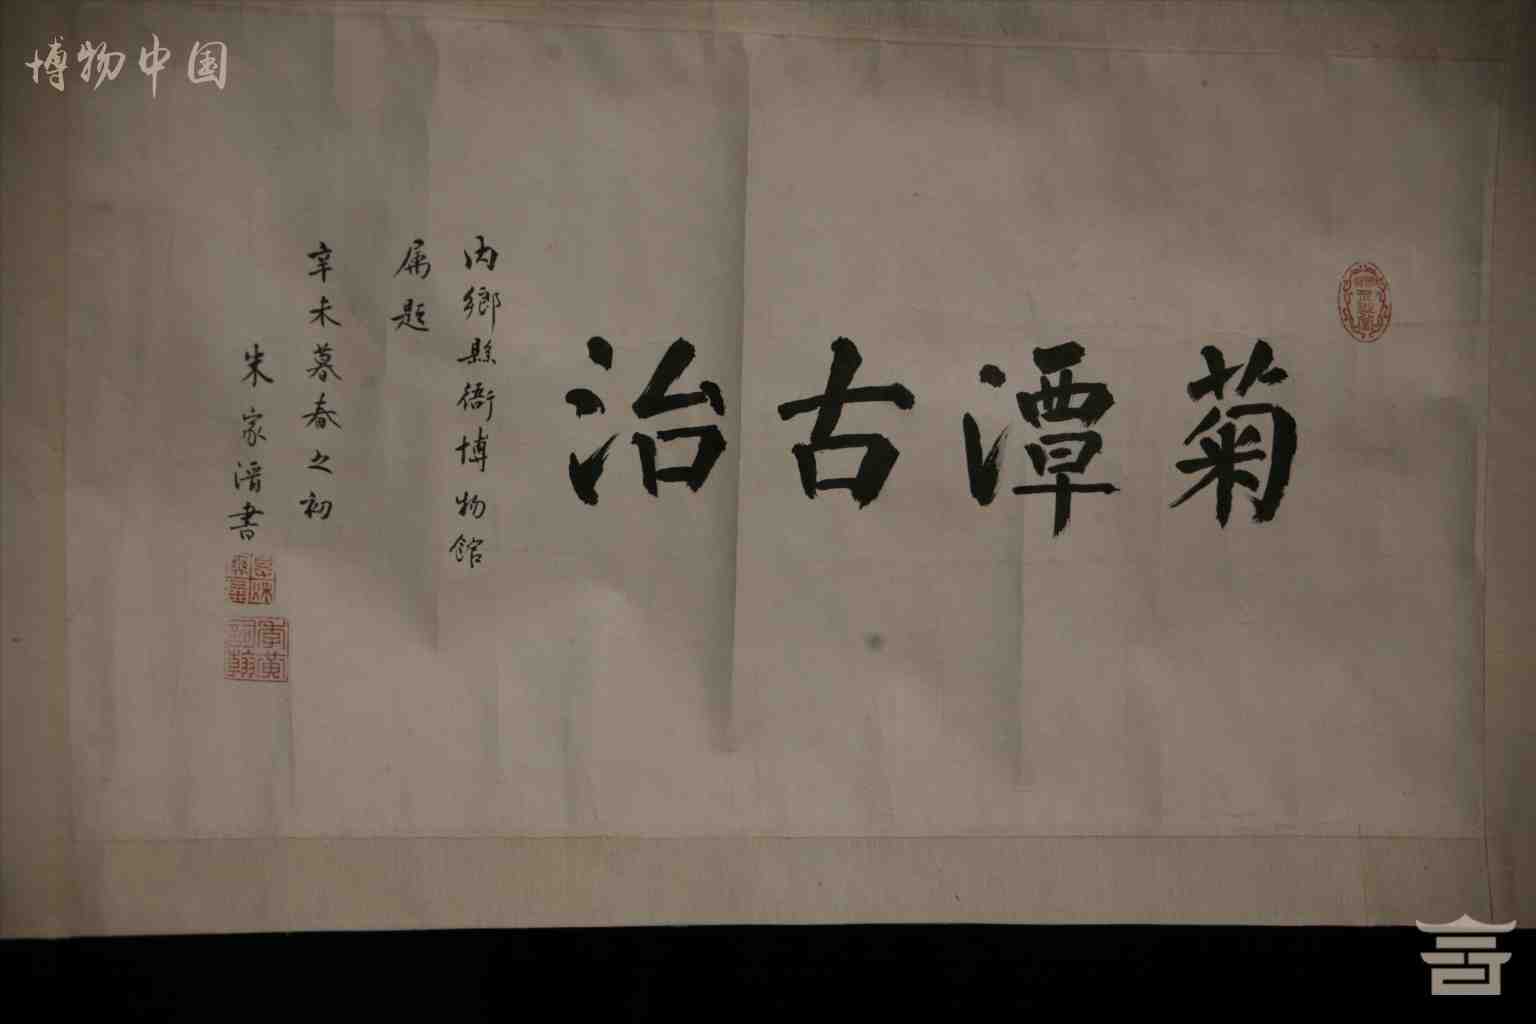 博物中国
菊潭古治
内鄉縣衙博物館
属題
辛未暮春之初
朱家溍書